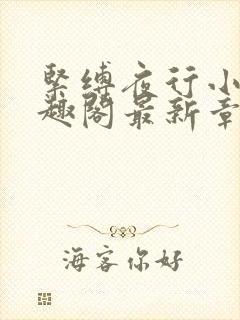 緊縛夜行小
趣閣最新章
海客你好